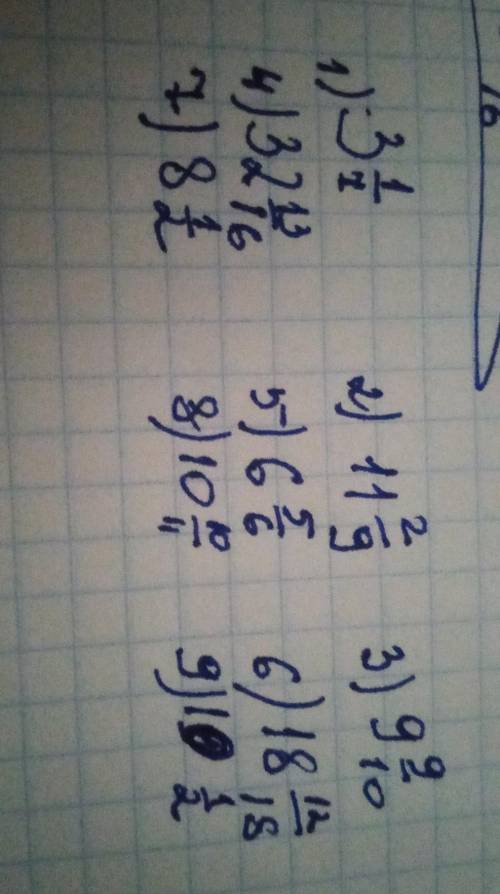 1) 3 1/7 2) 11 2/9 3) 9 9/10
4) 32 13/16 5) 6 5/6 6) 18 12/18
7) 8 1/2 8) 10 10/11 9) 1 1/2